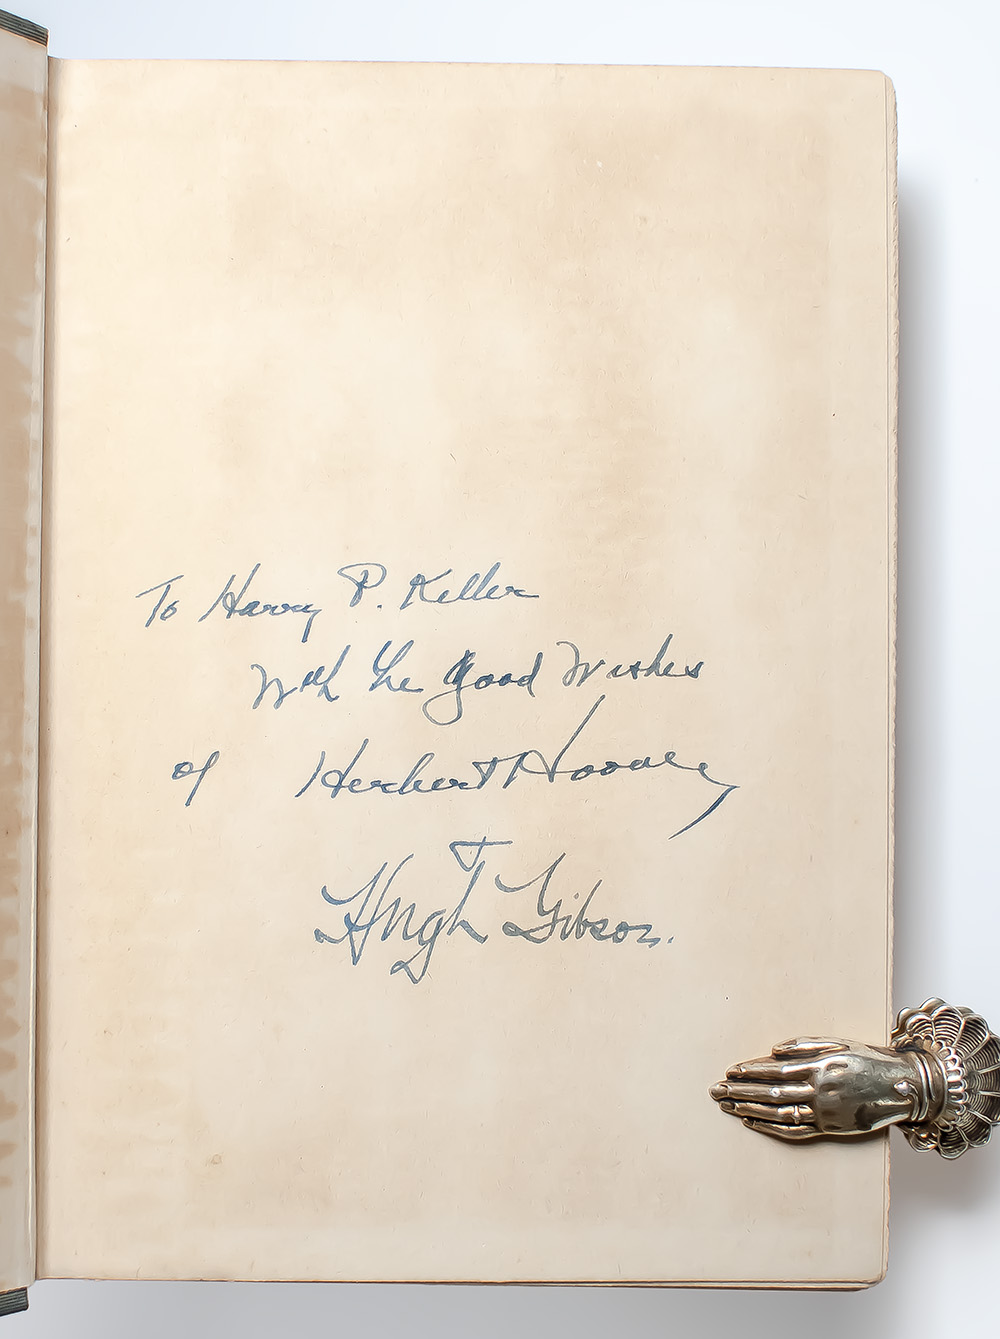 To Harry P. Keller
With the Good Wishes
of Herbert Hoover
Hugh Gibson.